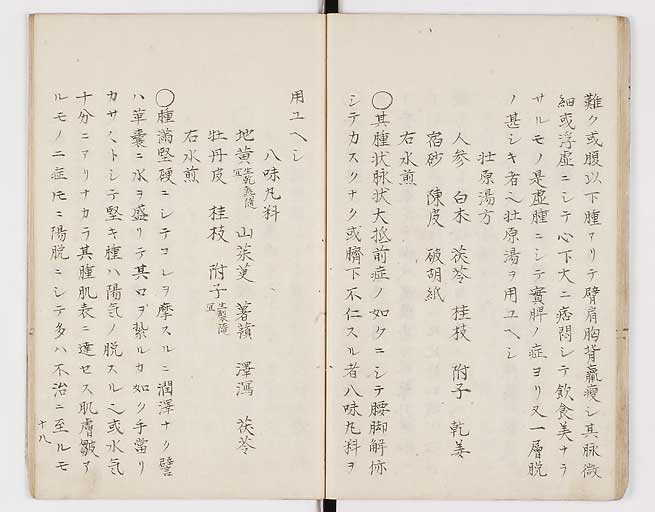 難ク或腹以下腫アリテ臂肩胸背羸瘦シ其脉微
細或浮虚ニシテ心下大ニ痞悶シテ飲食美ナラ
サルモノ是虚腫ニシテ實脾ノ症ヨリ又一層脱
ノ甚シキ者ヘ壮原湯ヲ用ユヘシ
壮原湯方
人参 白朮 茯苓 桂枝 附子 乾姜
宿砂 陳皮 破胡紙
右水煎
◯其腫状脉状大抵前症ノ如クニシテ腰脚解㑊
シテカスクナク或臍下不仁スル者八味丸料ヲ
用ユヘシ
八味丸料
地黄生乾熟隨宜 山茱萸 薯蕷 澤瀉 茯苓
牡丹皮 桂枝 附子生製隨宜
右水煎
◯腫滿堅硬ニシテコレヲ摩スルニ潤澤ナク譬
ハ革嚢ニ水ヲ盛リテ其口ヲ紮ルカ如ク手當リ
カサくトシテ堅キ腫ハ陽気ノ脱スル也或水気
十分ニアリナカラ其腫肌表ニ達セス肌膚皺ア
ルモノ二症𪜈ニ陽脱ニシテ多ハ不治ニ至ルモ
十八